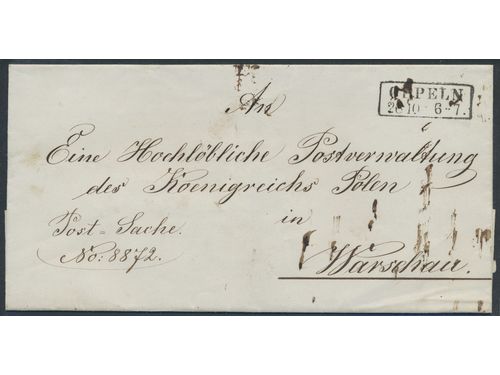 OPPELN
26 10 6-7.
An
Eine Hochlöbliche Postverwaltung
des Koenigreichs Polen
in
Warschau.
Post=Sache.
No: 8872.